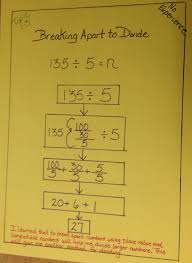 No
Experience
Breaking Apart to Divide
135 ÷ 5 = n
135 ÷ 5
135 { 100 30 5 ÷ 5
100/5 + 30/5 + 5/5
20 + 6 + 1
27
I learned that to break apart numbers using place value and
compatible numbers will help me divide larger numbers. This
will give me another method for dividing.